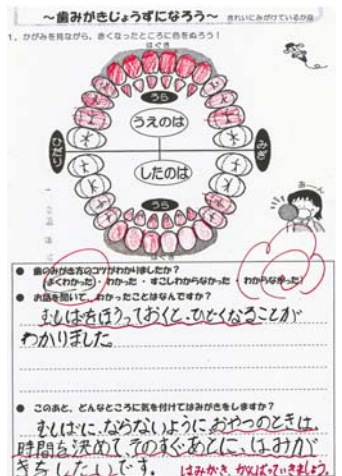 ～歯みがきじょうずになろう～ きれいにみがけているかな
1、かがみを見ながら、赤くなったところに色をぬろう！
はぐき
うら
うえのは
ひだり
みぎ
したのは
うら
はぐき
あ～ん
● 歯のみがき方のコツがわかりましたか？
よくわかった ・ わかった ・ すこしわからなかった ・ わからなかった
● お話を聞いて、わかったことはなんですか？
むしばをほうっておくと、ひどくなることが
わかりました。
● このあと、どんなところに気を付けてはみがきをしますか？
むしばに、ならないように、おやつのときは、
時間を決めて、そのすぐあとに、はみが
きをしたいです。 はみがき、がんばっていきましょう。